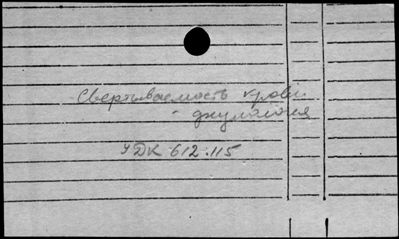 Свертываемость крови
УДК 612.115